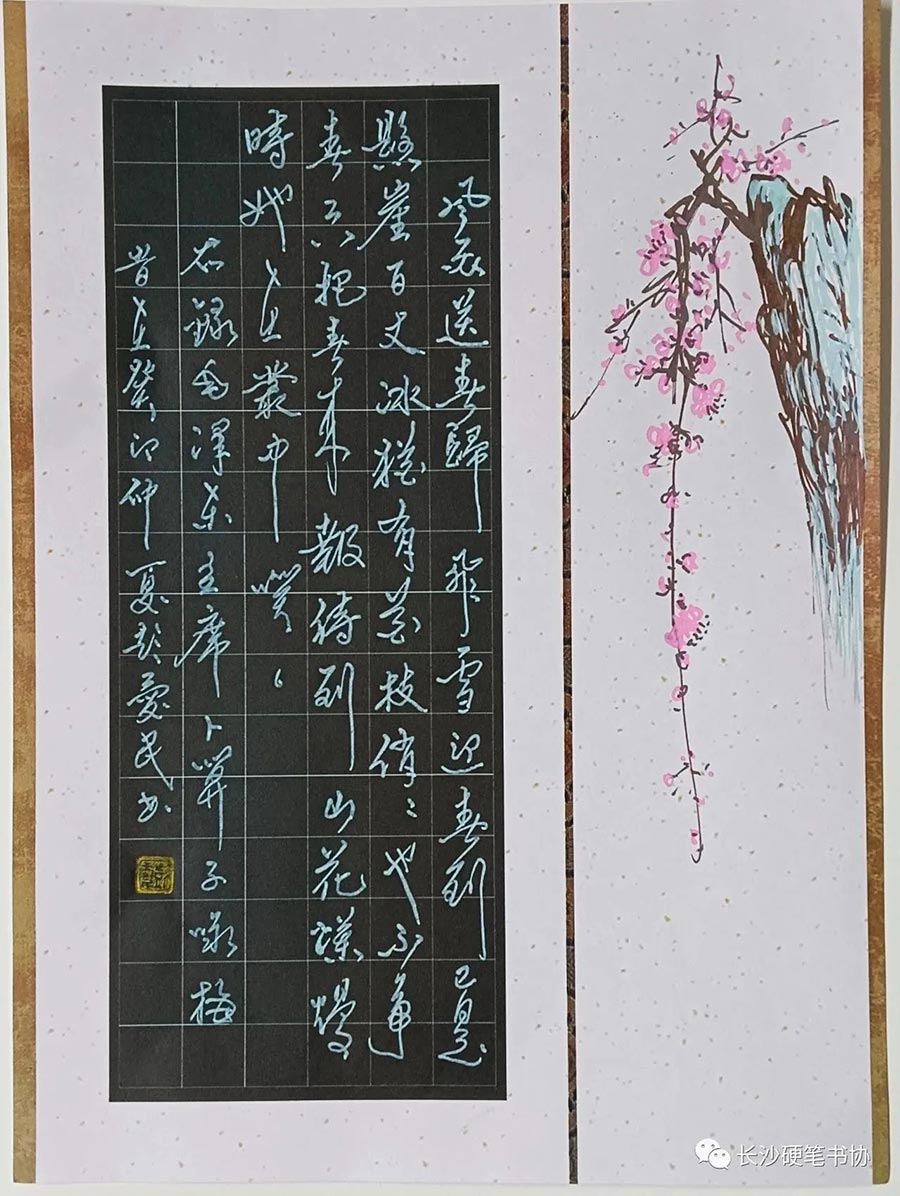 風雨送春歸飛雪迎春到已是
懸崖百丈冰猶有花枝俏〻也不爭
春只把春來報待到山花爛熳
時她在叢中笑
右録毛澤東主席卜算子咏梅
旹在癸卯仲夏愛民书
长沙硬笔书协